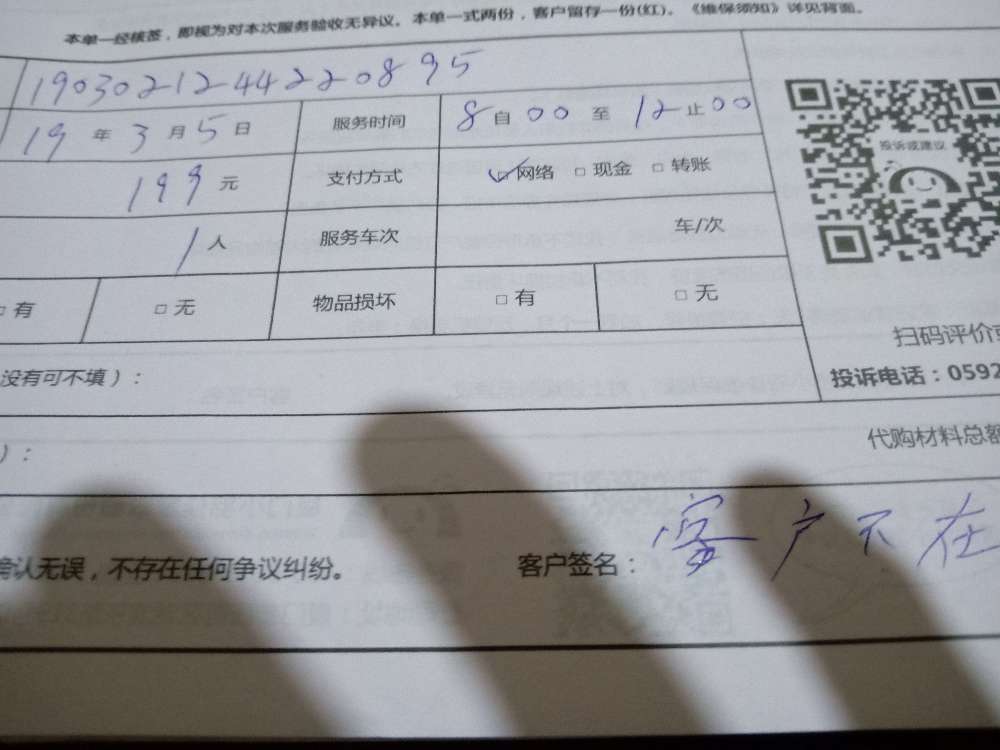 本单一经核签，即视为对本次服务验收无异议。本单一式两份，客户留存一份(红)。《维保须知》详见背面。
190302124422 0895
19 年 3 月 5 日 服务时间 8 自 00 至 12 止 00
199 元 支付方式 ☑ 网络 □ 现金 □ 转账
投诉或建议
1 人 服务车次 车/次
□ 有 □ 无 物品损坏 □ 有 □ 无
扫码评价或
没有可不填）：
投诉电话：0592
）： 代购材料总额
确认无误，不存在任何争议纠纷。 客户签名：客户不在